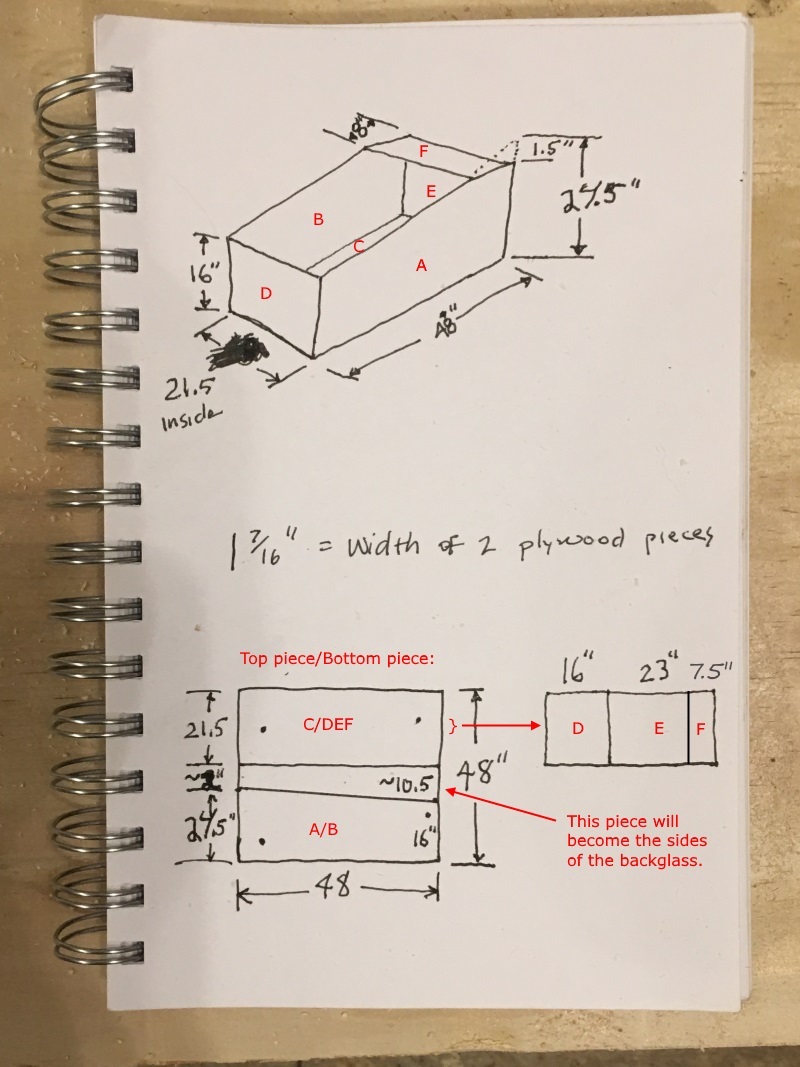 8"
F
1.5"
24.5"
E
B
C
A
16"
D
48"
21.5
inside
1 7/16" = Width of 2 plywood pieces
Top piece/Bottom piece:
16" 23" 7.5"
21.5
C/DEF
}
D E F
~10.5
48"
24.5"
A/B
16"
This piece will
become the sides
of the backglass.
48